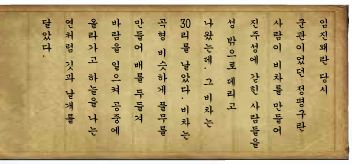 임진왜란 당시
군관이었던 정평구란
사람이 비차를 만들어
진주성에 갇힌 사람들을
성 밖으로 데리고
나왔는데, 그 비차는
30리를 날았다. 비차는
곡형 비슷하게 풀무를
만들어 배를 두들겨
바람을 일으켜 공중에
올라가고 하늘을 나는
연처럼 깃과 날개를
달았다.